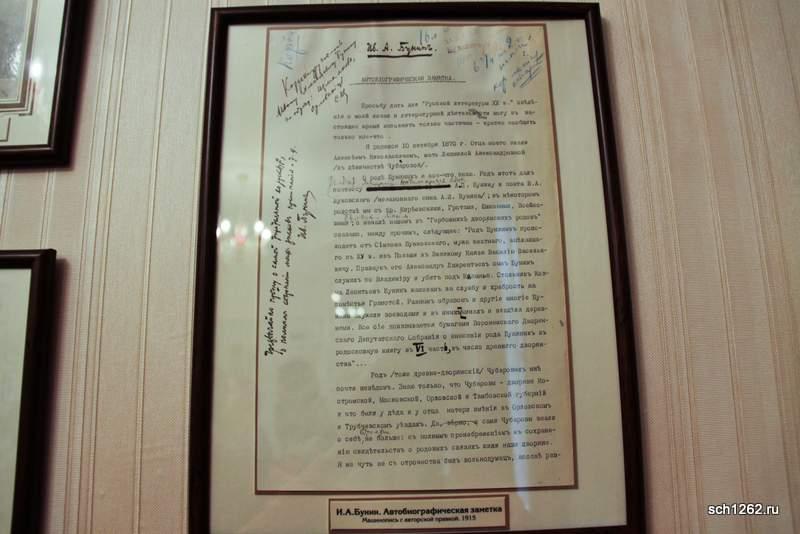 Ив. А. Бунинъ.
АВТОБІОГРАФИЧЕСКАЯ ЗАМѢТКА.
Просьбу дать для "Русской литературы ХХ в." свѣдѣ-
нія о моей жизни и литературной дѣятельности могу въ на-
стоящее время исполнить только частично - кратко сообщить
только кое-что .
Я родился 10 октября 1870 г. Отца моего звали
Алексѣемъ Николаевичемъ, мать Людмилой Александровной
/ въ дѣвичествѣ Чубаровой/.
О родѣ Буниныхъ я кое-что знаю. Родъ этотъ далъ
поэтессу А.П. Бунину и поэта В.А.
Жуковскаго /незаконнаго сына А.И. Бунина/; въ нѣкоторомъ
родствѣ мы съ бр. Кирѣевскими, Гротами, Юшковыми, Воейко-
выми; о началѣ нашемъ въ "Гербовникѣ дворянскихъ родовъ"
сказано, между прочимъ, слѣдующее: "Родъ Буниныхъ проис-
ходитъ отъ Сімеона Бунковскаго, мужа знатнаго, выѣхавша-
го въ XV в. изъ Польши къ Великому Князю Василію Василье-
вичу. Правнукъ его Александръ Лаврентьевъ сынъ Бунинъ
служилъ по Владиміру и убитъ подъ Казанью. Стольникъ Коз-
ма Леонтьевъ Бунинъ жалованъ за службу и храбрость на
помѣстья Грамотой. Равнымъ образомъ и другіе многіе Бу-
нины служили воеводами и въ иныхъ чинахъ и владѣли дерев-
нями. Все сіе доказывается бумагами Воронежскаго Дворян-
скаго Депутатскаго Собранія о внесеніи рода Буниныхъ въ
родословную книгу въ VI часть, въ число древняго дворян-
ства"...
Родъ /тоже древне-дворянскій/ Чубаровыхъ мнѣ
почти невѣдомъ. Знаю только, что Чубаровы - дворяне Ко-
стромской, Московской, Орловской и Тамбовской губерній
и что были у дѣда и у отца матери имѣнія въ Орловскомъ
и Трубчевскомъ уѣздахъ. Да, вѣрно, и сами Чубаровы знали
о себѣ не больше: съ полнымъ пренебреженіемъ къ сохране-
нію свидѣтельствъ о родовыхъ связяхъ жили наши дворяне.
Я же чуть не съ отрочества былъ вольнодумецъ, вполнѣ рав-
Ив. Бунинъ
И.А.Бунин. Автобиографическая заметка
Машинопись с авторской правкой. 1915
sch1262.ru